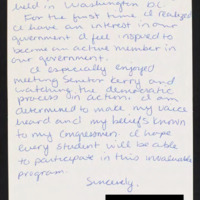 held in Washington DC.
For the first time I realized
I have an interest in our
government. I feel inspired to
become an active member in
our government.
I especially enjoyed
meeting Senator Kerry and
watching the democratic
process in action. I am
determined to make my voice
heard and my beliefs known
to my Congressmen. I hope
every student will be able
to participate in this invaluable
program.
Sincerely,